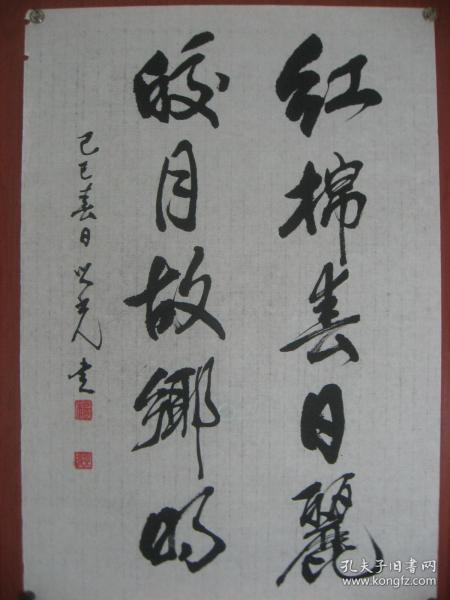 红棉春日麗
皎月故鄉明
己巳春日以光書
孔夫子旧书网
www.kongfz.com